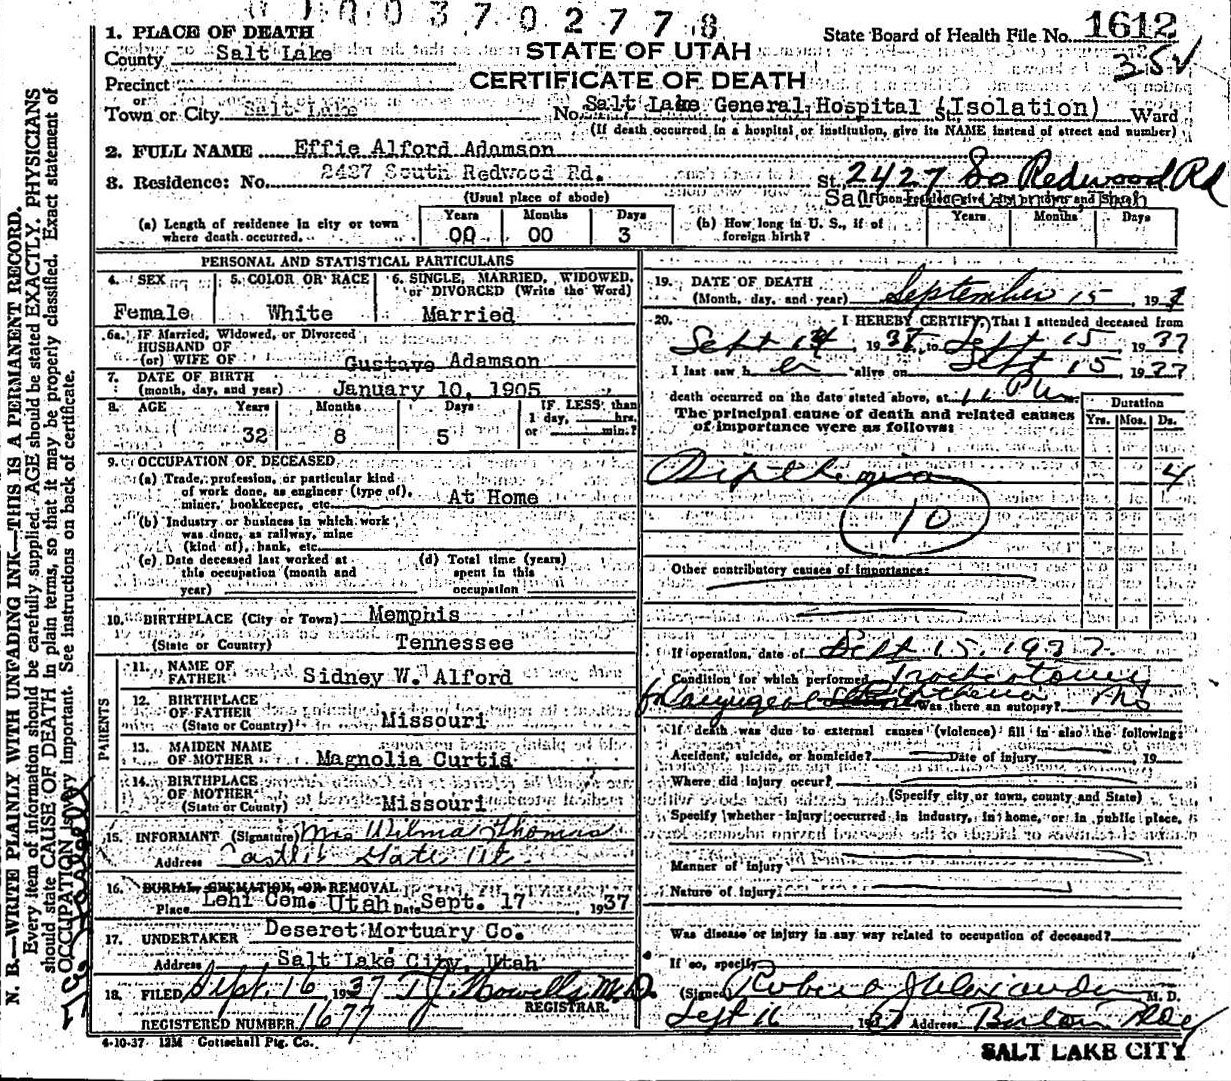 00370277 8
1. PLACE OF DEATH
State Board of Health File No. 1612
County Salt Lake
STATE OF UTAH
35
Precinct
CERTIFICATE OF DEATH
or
Town or City Salt Lake No. Salt Lake General Hospital St. (Isolation) Ward
(If death occurred in a hospital or institution, give its NAME instead of street and number)
2. FULL NAME Effie Alford Adamson
3. Residence: No. 2427 South Redwood Rd. St. 2427 So Redwood Rd
(Usual place of abode)
(If non-resident give city or town and State)
(a) Length of residence in city or town where death occurred. Years 00 Months 00 Days 3
(b) How long in U. S., if of foreign birth? Years Months Days
PERSONAL AND STATISTICAL PARTICULARS
4. SEX Female
5. COLOR OR RACE White
6. SINGLE, MARRIED, WIDOWED, or DIVORCED (Write the Word) Married
6a. IF Married, Widowed, or Divorced
HUSBAND OF
(or) WIFE OF Gustave Adamson
7. DATE OF BIRTH
(month, day, and year) January 10, 1905
8. AGE Years 32 Months 8 Days 5 IF LESS than 1 day, hrs. or min.?
9. OCCUPATION OF DECEASED
(a) Trade, profession, or particular kind
of work done, as engineer (type of),
miner, bookkeeper, etc. At Home
(b) Industry or business in which work
was done, as railway, mine
(kind of), bank, etc.
(c) Date deceased last worked at
this occupation (month and
year)
(d) Total time (years)
spent in this
occupation
10. BIRTHPLACE (City or Town) Memphis
(State or Country) Tennessee
PARENTS
11. NAME OF
FATHER Sidney W. Alford
12. BIRTHPLACE
OF FATHER
(State or Country) Missouri
13. MAIDEN NAME
OF MOTHER Magnolia Curtis
14. BIRTHPLACE
OF MOTHER
(State or Country) Missouri
15. INFORMANT (Signature) Mrs Wilma Thomas
Address Castle Gate Ut.
16. BURIAL, CREMATION, OR REMOVAL
Place Lehi Cem. Utah Date Sept. 17, 1937
17. UNDERTAKER Deseret Mortuary Co.
Address Salt Lake City, Utah
18. FILED Sept. 16 1937 T J Howells M.D.
REGISTRAR.
REGISTERED NUMBER 1677
4-10-37 12M Gottschall Ptg. Co.
19. DATE OF DEATH
(Month, day, and year) September 15, 193
20. I HEREBY CERTIFY, That I attended deceased from
Sept 14 1937, to Sept 15, 1937
I last saw h er alive on Sept 15, 1937
death occurred on the date stated above, at 11 PM
The principal cause of death and related causes
of importance were as follows:
Duration
Yrs. Mos. Ds.
Diptheria 4
10
Other contributory causes of importance:
If operation, date of Sept 15, 1937.
Condition for which performed Tracheotomy
for Laryngeal Diptheria Was there an autopsy? No
If death was due to external causes (violence) fill in also the following:
Accident, suicide, or homicide? Date of injury, 19
Where did injury occur?
(Specify city or town, county and State)
Specify whether injury occurred in industry, in home, or in public place,
Manner of injury
Nature of injury
Was disease or injury in any way related to occupation of deceased?
If so, specify
(Signed) M. D.
Sept 16 1937 Address
SALT LAKE CITY
N. B.—WRITE PLAINLY WITH UNFADING INK—THIS IS A PERMANENT RECORD.
Every item of information should be carefully supplied. AGE should be stated EXACTLY. PHYSICIANS
should state CAUSE OF DEATH in plain terms, so that it may be properly classified. Exact statement of
OCCUPATION is very important. See instructions on back of certificate.